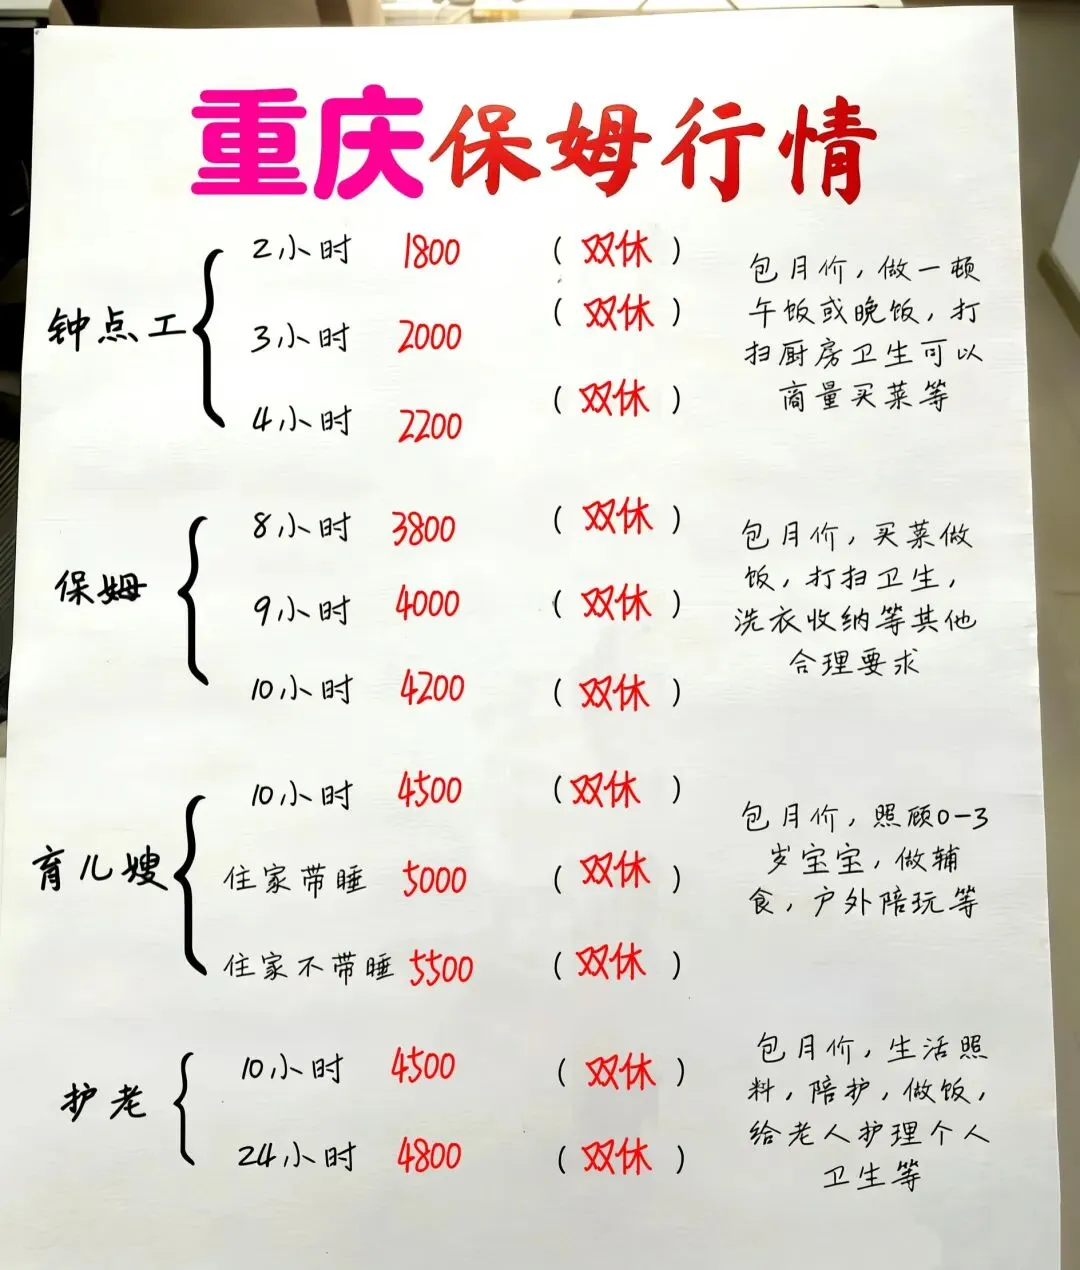 重庆保姆行情
钟点工
2小时 1800 (双休)
3小时 2000 (双休)
4小时 2200 (双休)
包月价，做一顿
午饭或晚饭，打
扫厨房卫生可以
商量买菜等
保姆
8小时 3800 (双休)
9小时 4000 (双休)
10小时 4200 (双休)
包月价，买菜做
饭，打扫卫生，
洗衣收纳等其他
合理要求
育儿嫂
10小时 4500 (双休)
住家带睡 5000 (双休)
住家不带睡 5500 (双休)
包月价，照顾0-3
岁宝宝，做辅
食，户外陪玩等
护老
10小时 4500 (双休)
24小时 4800 (双休)
包月价，生活照
料，陪护，做饭，
给老人护理个人
卫生等